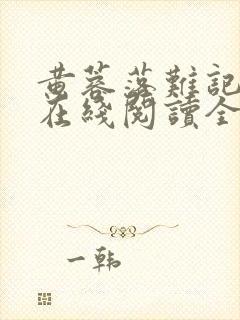 黄蓉落難記
在綫閲讀全
一韩